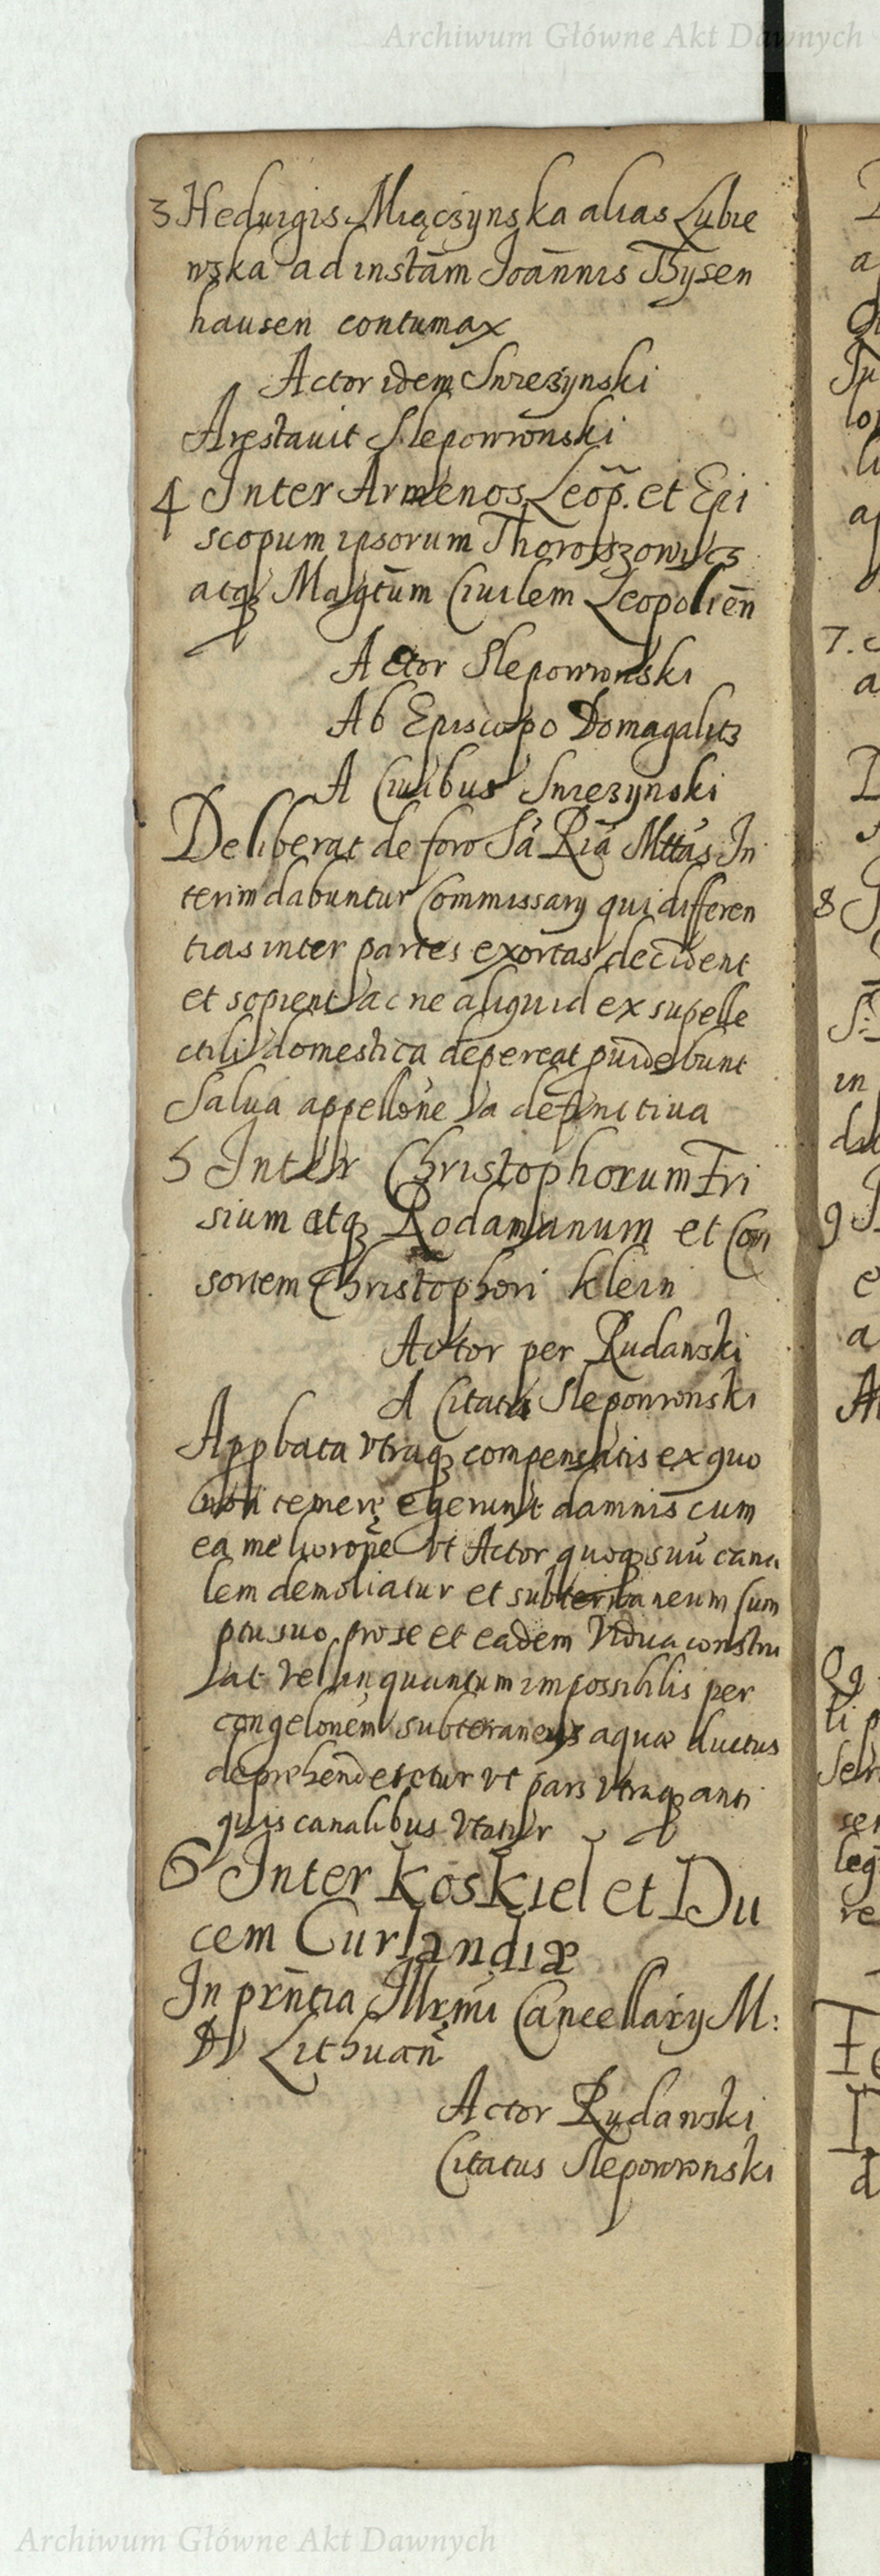 Archiwum Główne Akt Dawnych
3 Heduigis Miączynska alias Lubie
wska ad instãm Joãnnis Tysen
hausen contumax
Actor idem Snieżynski
Arestauit Slepowronski
4 Inter Armenos Leop̃. et Epi
scopum ipsorum Thoroszowicz
atq Magtũm Ciuilem Leopoliẽn
Actor Slepowronski
Ab Episcopo Domagalicz
A Ciuibus Sniezynski
Deliberat de foro Sa Ria Mttas In
terim dabuntur Commissarij qui differen
tias inter partes exortas decident
et sopient ac ne aliquid ex supelle
ctili domestica depereat puidebunt
Salua appellõne a definitiua
5 Inter Christophorum Fri
sium atq Rodamanum et Con
sortem Christophori Klein
Actor per Rudawski
A Citatis Slepowronski
Appbata vtraq compensatis ex quo
non temere egerunt damnis cum
ea meliorõne vt Actor quoq suũ cana
lem demoliatur et subterraneum sum
ptu suo pro se et eadem Vidua constru
at vel in quantum impossibilis per
congelonẽm subteraneus aquæ ductus
deprehenderetur vt pars vtraq anti
quis canalibus vtatur
6 Inter Koskiel et Du
cem Curlandiæ
In prñtia Illrmi Cancellarij M:
D Lithuañ
Actor Rudawski
Citatus Slepowronski
7.
8
9
Archiwum Główne Akt Dawnych